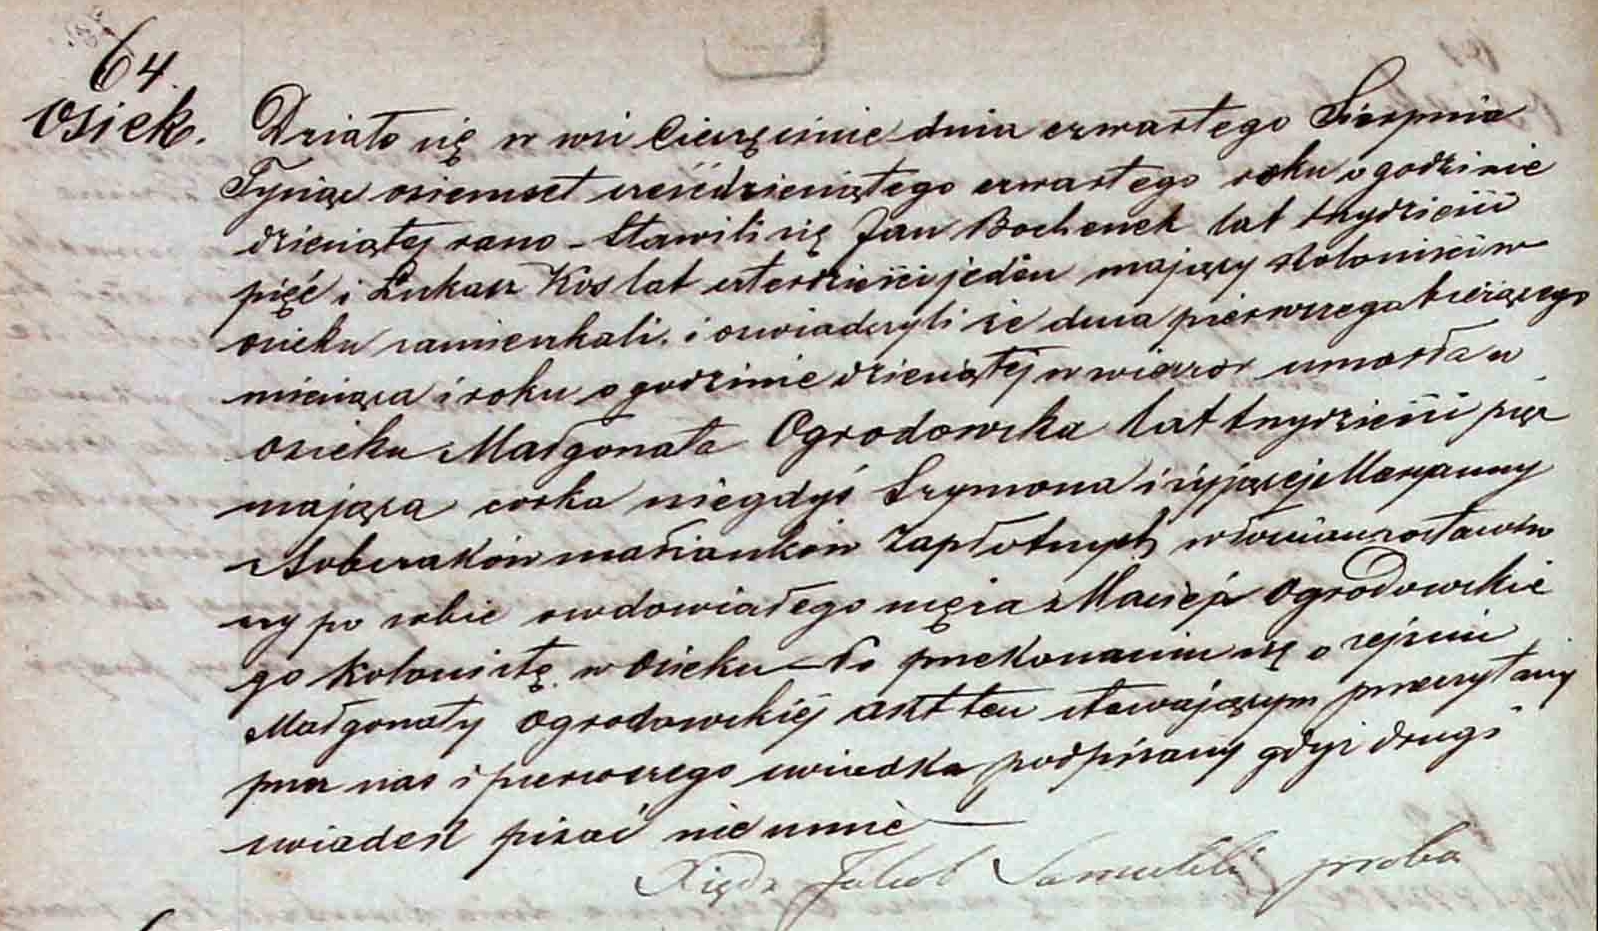 64.
Osiek.
Działo się w wsi Cieczęcinie dnia czwartego Sierpnia
Tysiąc osiemset sześćdziesiątego czwartego roku o godzinie
dziesiątej rano – Stawili się Jan Bochenek lat trzydzieści
pięć i Łukasz Kos lat czterdzieści jeden mający koloniści w
osieku zamieszkali. i oswiadczyli że dnia pierwszego bieżącego
miesiąca i roku o godzinie dziesiątej w wieczor umarła w
osieku Małgorzata Ogrodowska lat trzydzieści pięc
mająca corka niegdyś Szymona i żyjącej Maryanny
małżonków Zapłotnych włościan zostawiw
szy po sobie owdowiałego męża Macieja Ogrodowskie
go kolonistę w Osieku – Po przekonaniu się o zejściu
Małgorzaty Ogrodowskiej Akt ten stawającym przeczytany
przez nas i pierwszego swiadka podpisany gdyż drugi
swiadek pisać nie umie –
Xiądz Jakob